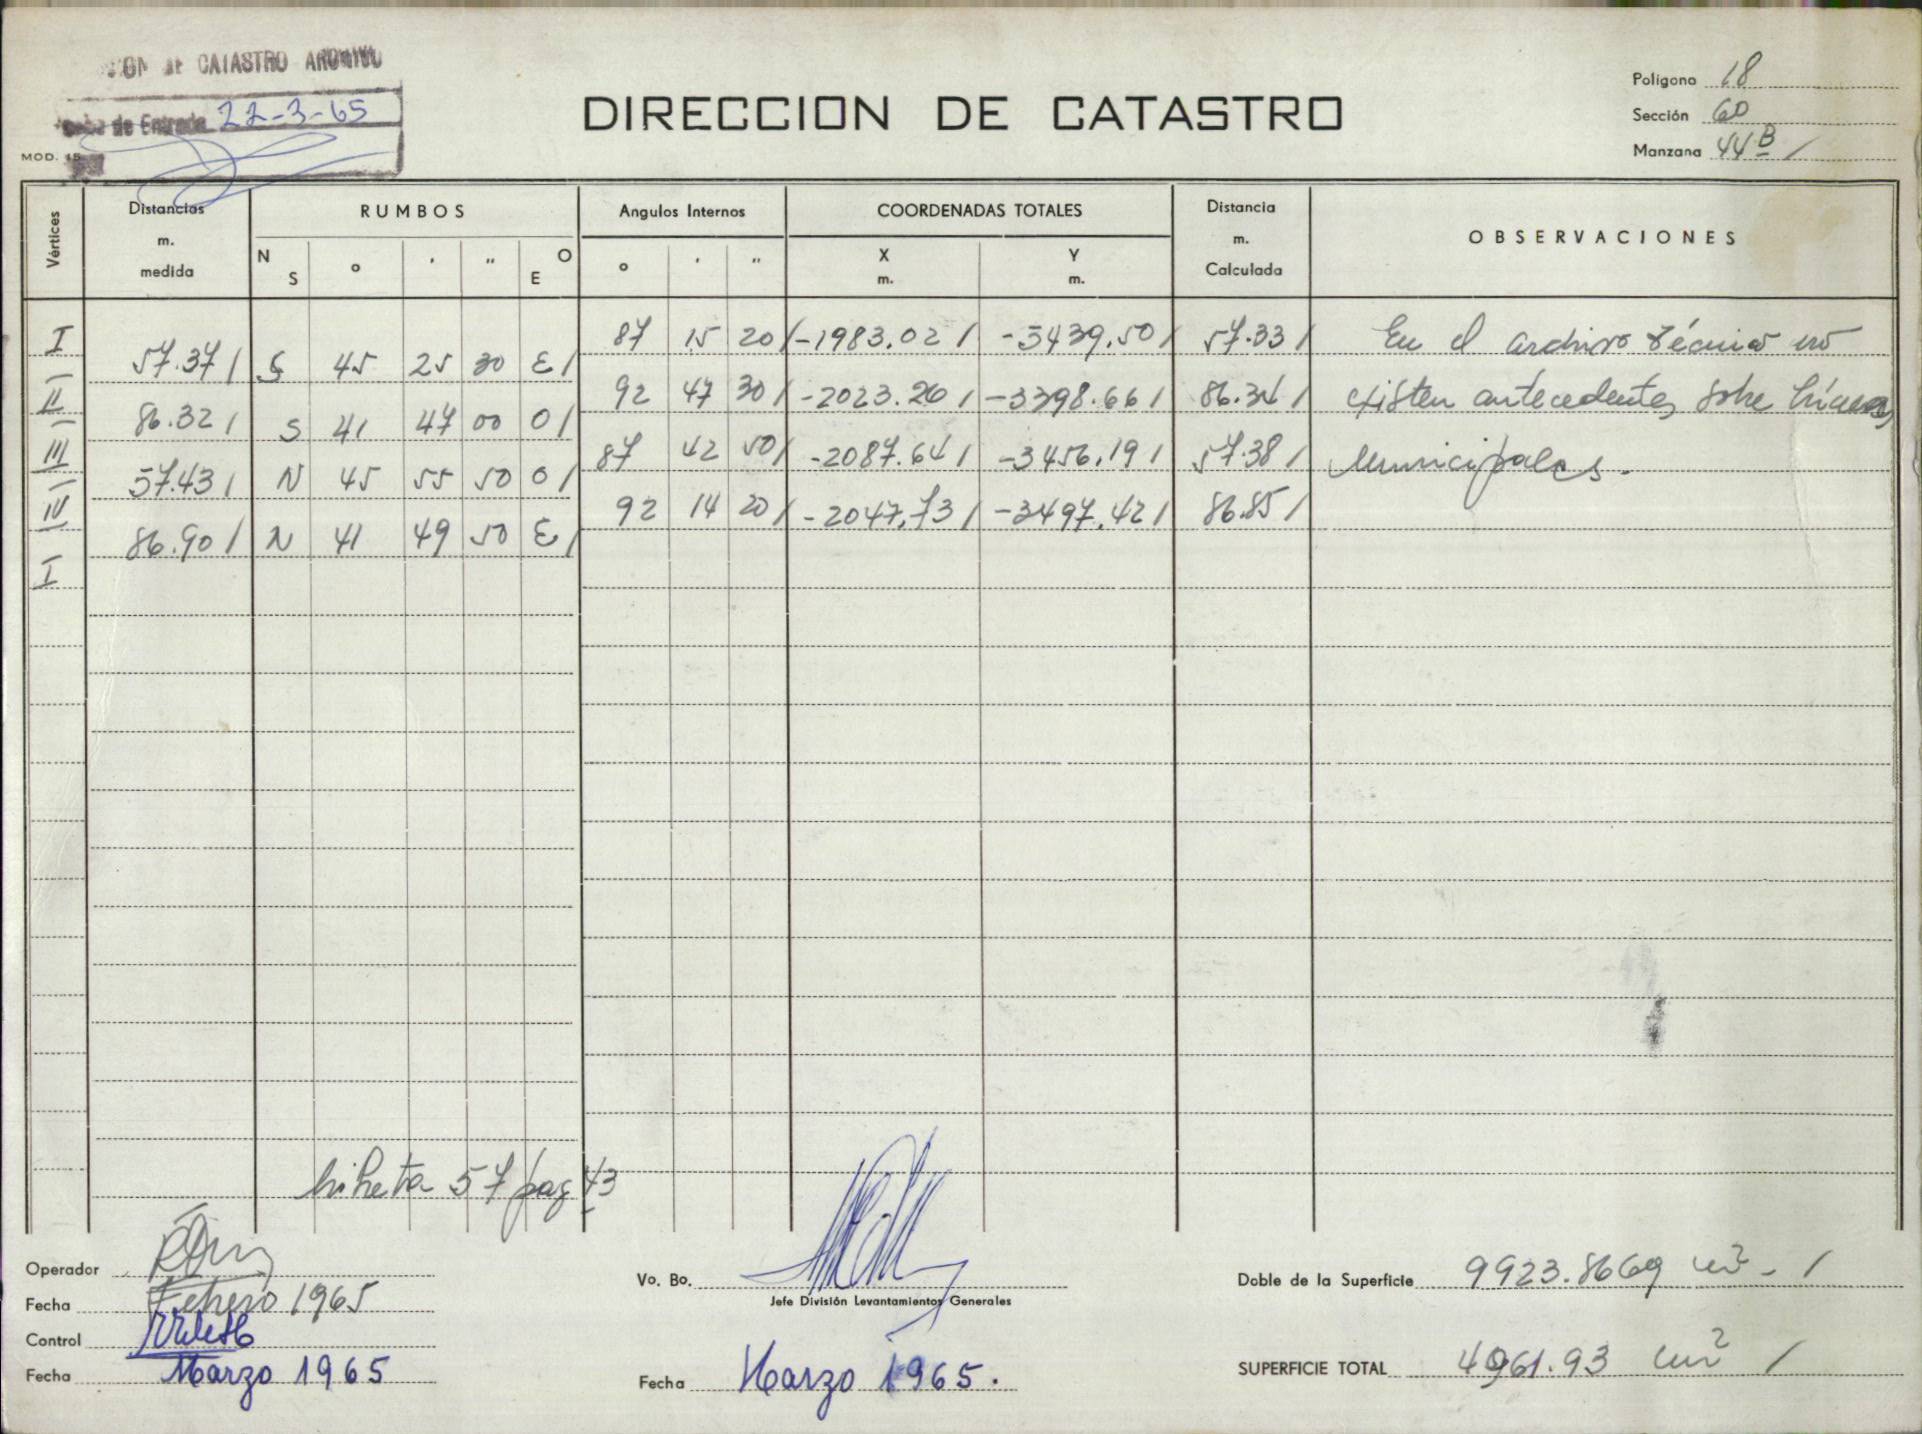 DE CATASTRO ARCHIVO
de Entrada 22-3-65
MOD. 15
DIRECCION DE CATASTRO
Polígono 18
Sección 60
Manzana 44B /
Vértices
Distancias m. medida
RUMBOS
N S ° ' " E O
Angulos Internos
° ' "
COORDENADAS TOTALES
X m. Y m.
Distancia m. Calculada
OBSERVACIONES
I 87 15 20 / -1983.02 / -3439.50 / 57.33 / En el archivo técnico no
57.37 / S 45 25 30 E /
II 92 47 30 / -2023.26 / -3398.66 / 86.34 / existen antecedentes sobre líneas
86.32 / S 41 47 00 O /
III 87 42 50 / -2087.64 / -3456.19 / 57.38 / Municipales.
57.43 / N 45 55 50 O /
IV 92 14 20 / -2047.73 / -3497.42 / 86.85 /
86.90 / N 41 49 50 E /
I
libreta 57 pag 43
Operador
Fecha Febrero 1965
Control
Fecha Marzo 1965
Vo. Bo.
Jefe División Levantamientos Generales
Fecha Marzo 1965.
Doble de la Superficie 9923.8669 m². /
SUPERFICIE TOTAL 4961.93 m² /